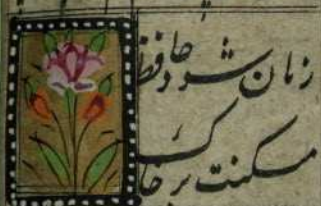 زمان شود حافظ
مسکنت بر خاک